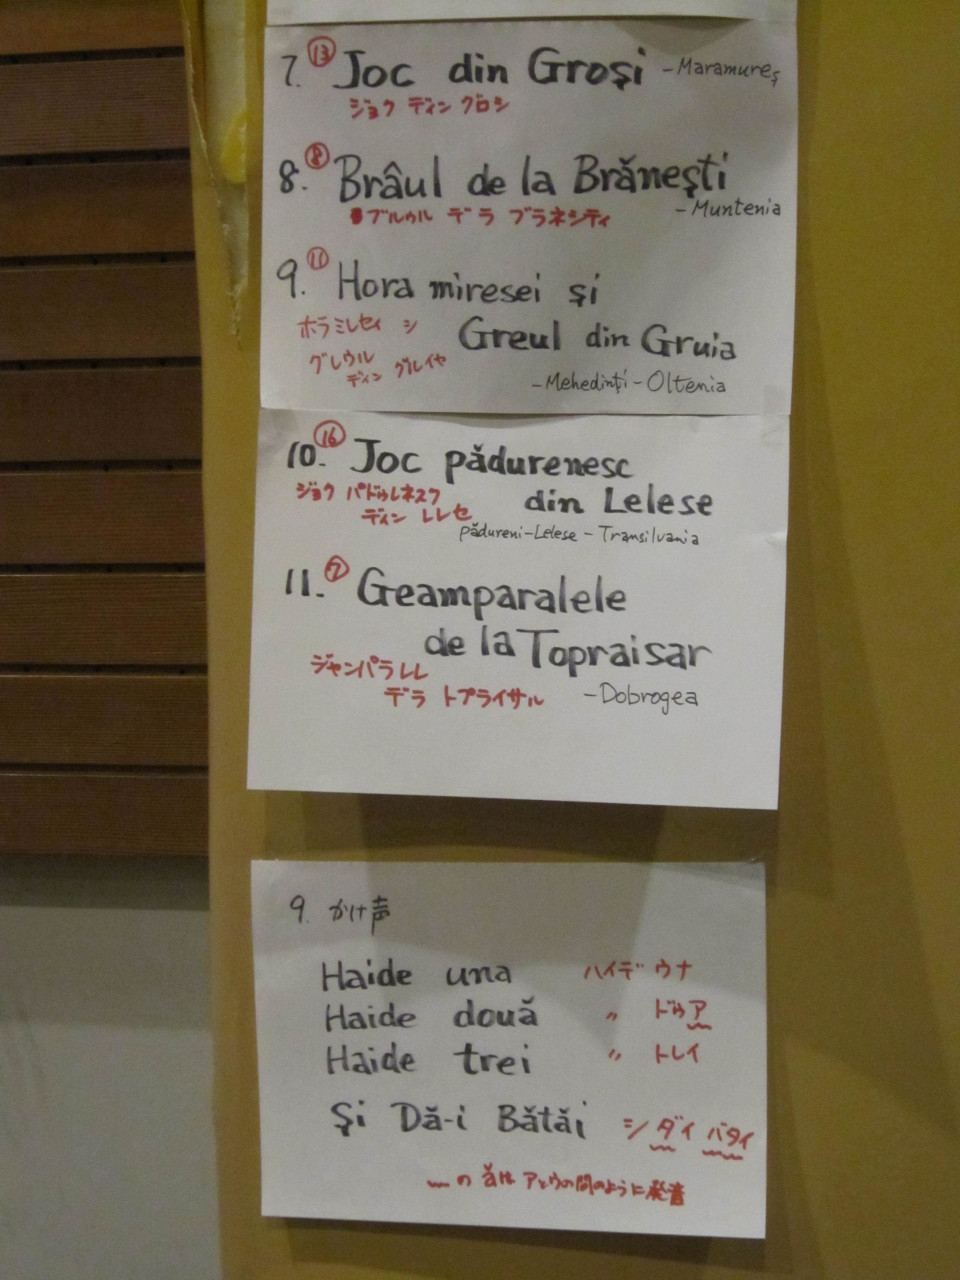 7. ⑬ Joc din Groşi - Maramureş
ジョク ディン グロシ
8. ⑧ Brâul de la Brăneşti
ブルゥル デ ラ ブラネシティ - Muntenia
9. ⑪ Hora miresei şi
ホラ ミレセイ シ Greul din Gruia
グレウル ディン グルイヤ
- Mehedinţi - Oltenia
10. ⑯ Joc pădurenesc
ジョク パドゥレネスク din Lelese
ディン レレセ
pădureni-Lelese - Transilvania
11. ⑦ Geamparalele
de la Topraisar
ジャンパラレレ
デ ラ トプライサル - Dobrogea
9. かけ声
Haide una ハイデ ウナ
Haide două 〃 ドゥア
Haide trei 〃 トレイ
Şi Dă-i Bătăi シ ダイ バタイ
〰 の ăは アとウの間のように発音